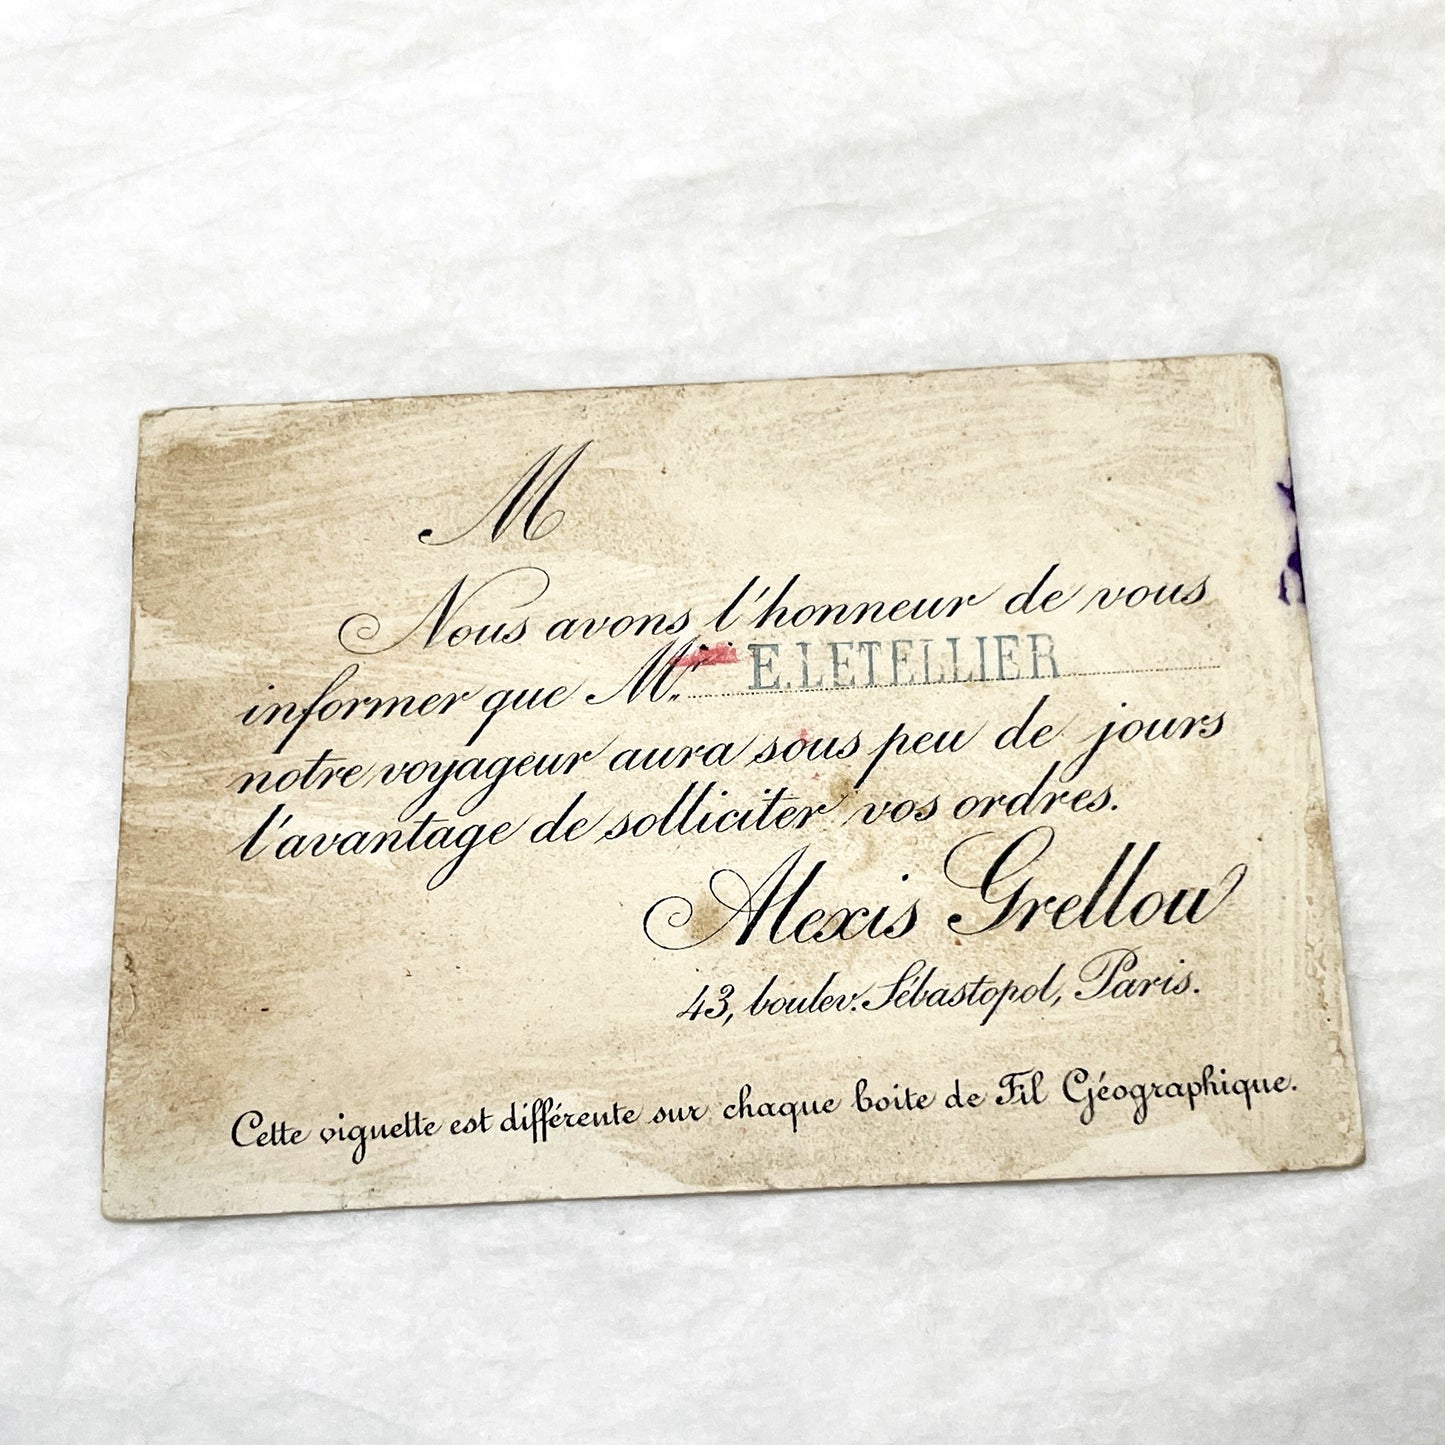 M
Nous avons l'honneur de vous
informer que Mr. E. LETELLIER
notre voyageur aura sous peu de jours
l'avantage de solliciter vos ordres.
Alexis Grellou
43, boulev. Sébastopol, Paris.
Cette vignette est différente sur chaque boite de Fil Géographique.